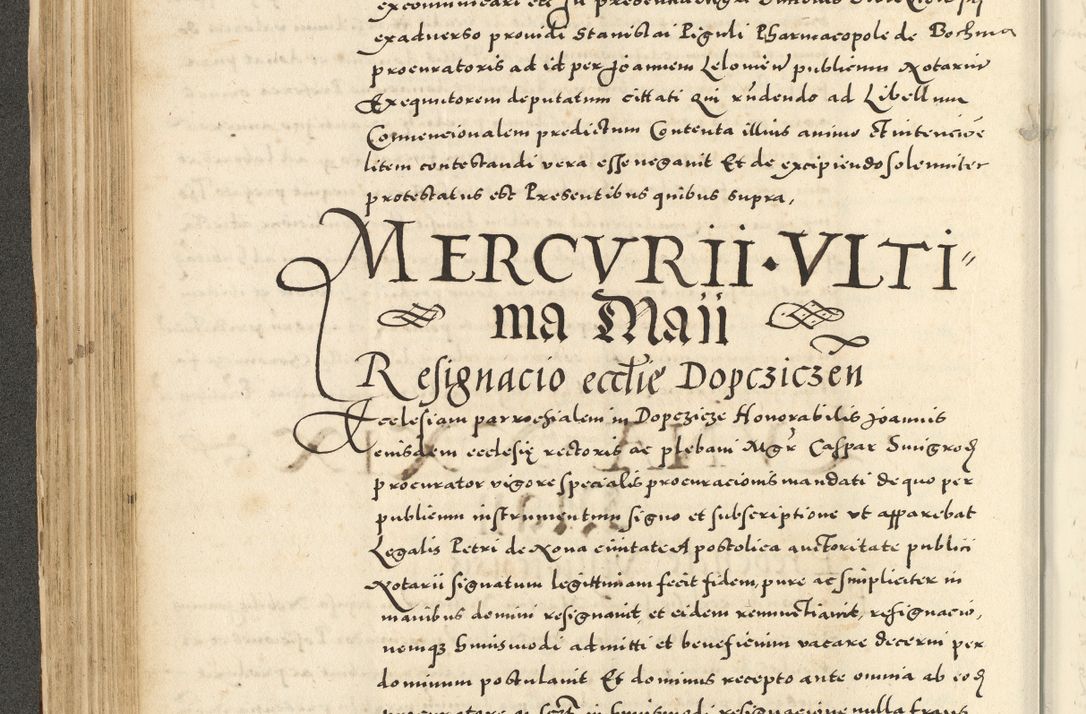 exadverso providi Stanislai Piguli Pharmacopole de Bochnia
procuratoris ad id per Joannem Lelowien publicum Notariu
Exequutorem deputatum cittati Qui rñdendo ad Libellum
Convencionalem predictum Contenta illius animo & intencioe
litem contestandi vera esse negavit Et de excipiendo solenniter
protestatus est Presentibus quibus supra,
MERCVRII · VLTI-
ma Maii
Resignacio ecclie Dopcziczen
Ecclesiam parrochialem in Dopczicze Honorabilis Joannis
eiusdem ecclesię rectoris ac plebani Mgr Caspar Smigrod
procurator vigore specialis procuracionis mandati de quo per
publicum instrumentum signo et subscriptione vt apparebat
Legalis Petri de Nova civitate Apostolica auctoritate publici
Notarii signatum legittimam fecit fidem, pure ac simpliciter in
manibus domini resignavit, et eidem renunctiavit, resignacio,
nemqz huiusmodi admitti et beneficium vacare decerni per
dominum postulavit Et dominus recepto ante omnia ab eod